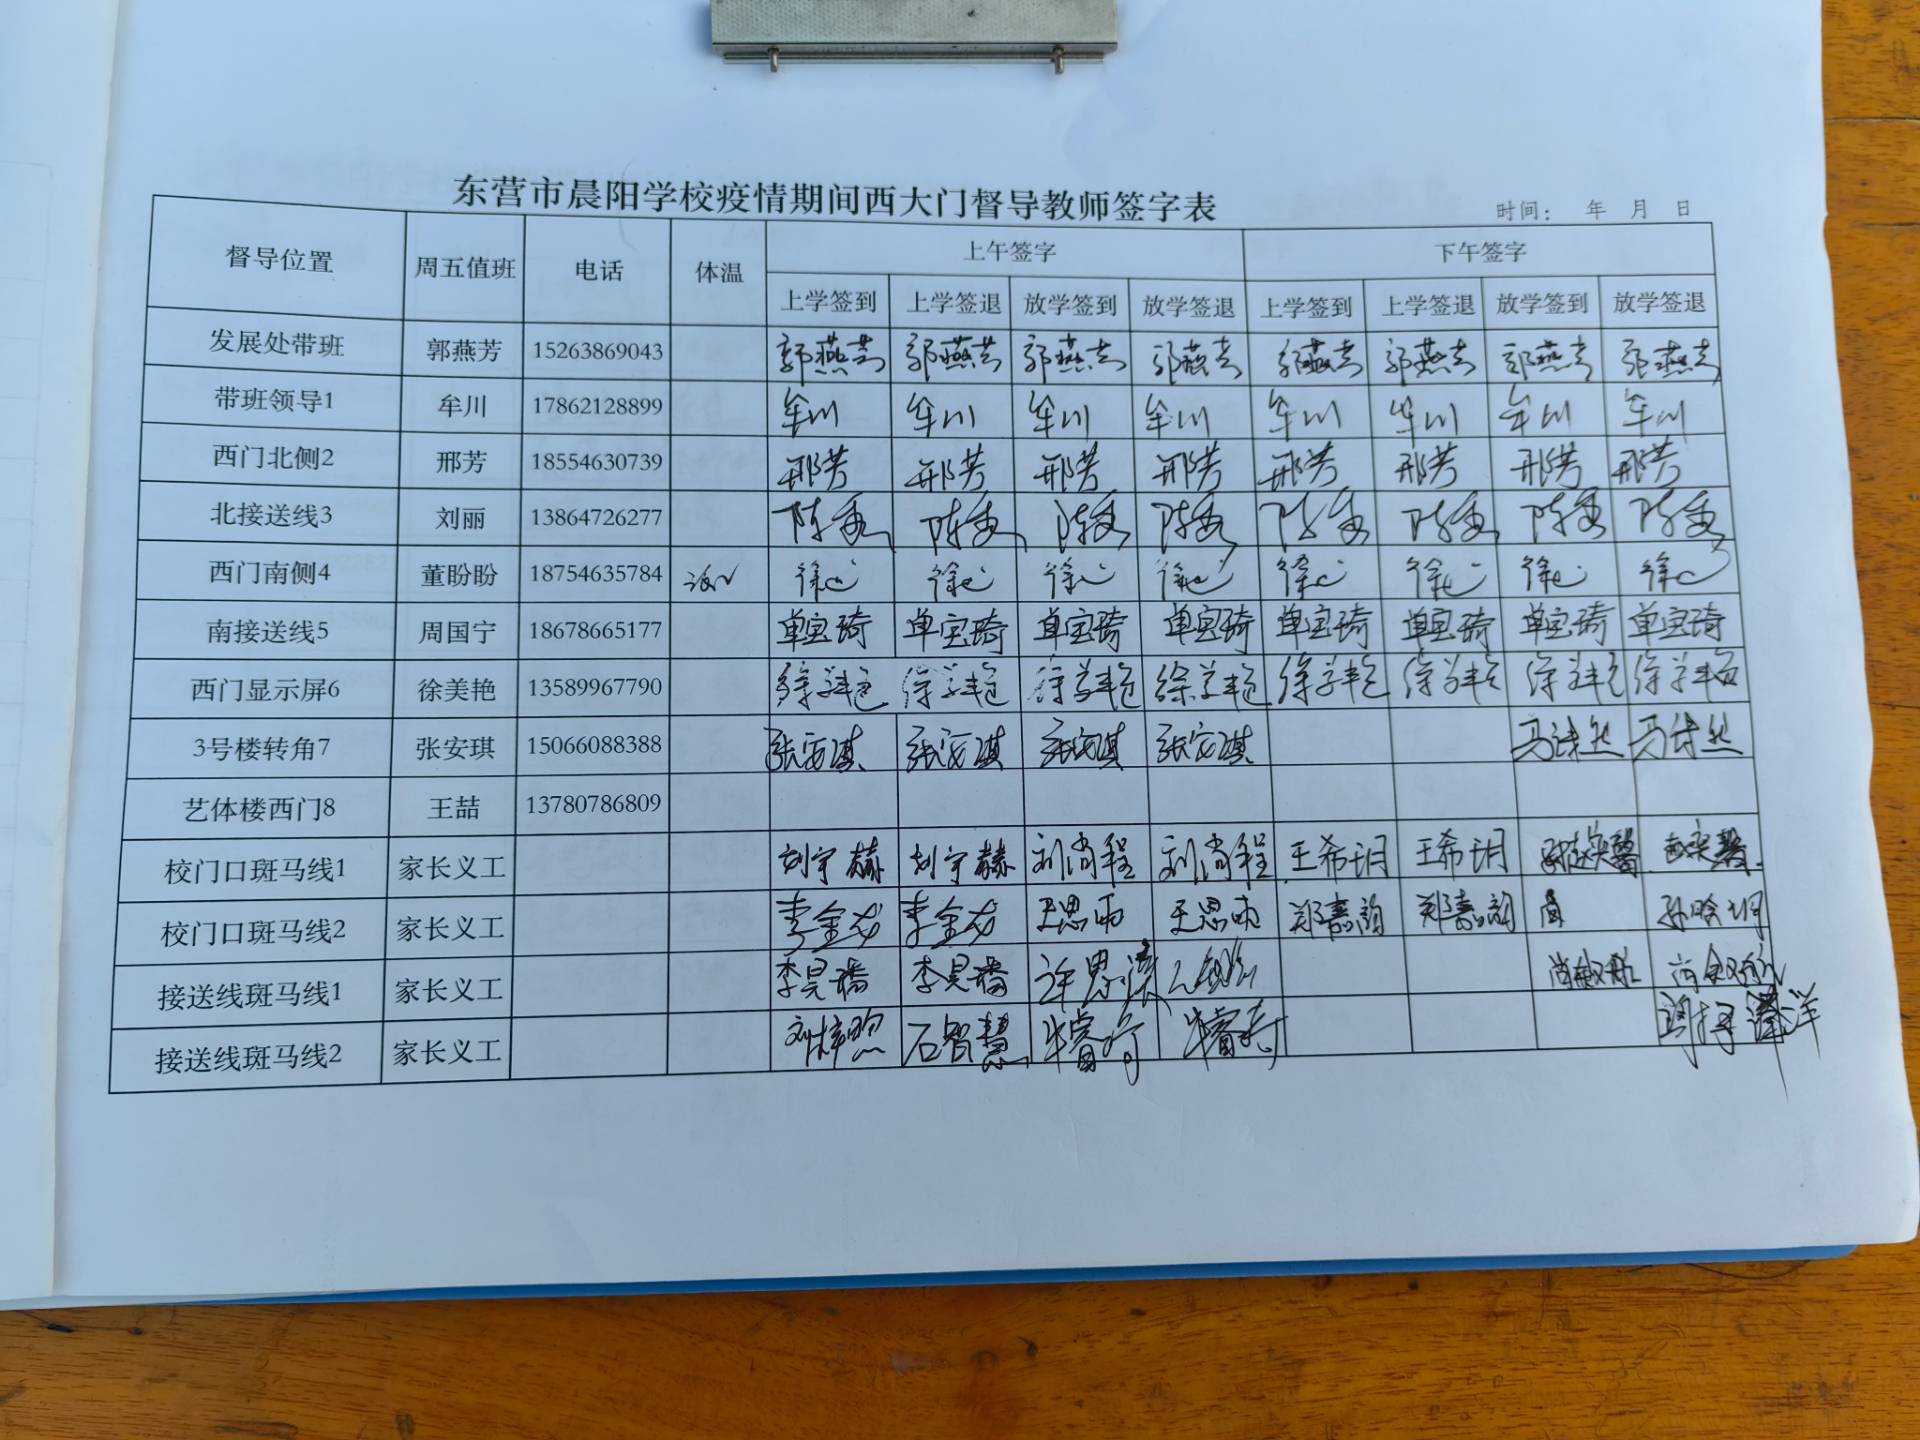 东营市晨阳学校疫情期间西大门督导教师签字表
时间： 年 月 日
督导位置 周五值班 电话 体温 上午签字 下午签字
上学签到 上学签退 放学签到 放学签退 上学签到 上学签退 放学签到 放学签退
发展处带班 郭燕芳 15263869043 郭燕芳 郭燕芳 郭燕芳 郭燕芳 郭燕芳 郭燕芳 郭燕芳 郭燕芳
带班领导1 牟川 17862128899 牟川 牟川 牟川 牟川 牟川 牟川 牟川 牟川
西门北侧2 邢芳 18554630739 邢芳 邢芳 邢芳 邢芳 邢芳 邢芳 邢芳 邢芳
北接送线3 刘丽 13864726277
西门南侧4 董盼盼 18754635784
南接送线5 周国宁 18678665177 单宝琦 单宝琦 单宝琦 单宝琦 单宝琦 单宝琦 单宝琦 单宝琦
西门显示屏6 徐美艳 13589967790 徐美艳 徐美艳 徐美艳 徐美艳 徐美艳 徐美艳 徐美艳 徐美艳
3号楼转角7 张安琪 15066088388 张安琪 张安琪 张安琪 张安琪
艺体楼西门8 王喆 13780786809
校门口斑马线1 家长义工 刘宇赫 刘宇赫 刘尚程 刘尚程 王希玥 王希玥
校门口斑马线2 家长义工 李金龙 李金龙 王思雨 王思雨 郑嘉韵 郑嘉韵 孙晗玥
接送线斑马线1 家长义工 李昊璠 李昊璠
接送线斑马线2 家长义工 刘梓煦 石智慧